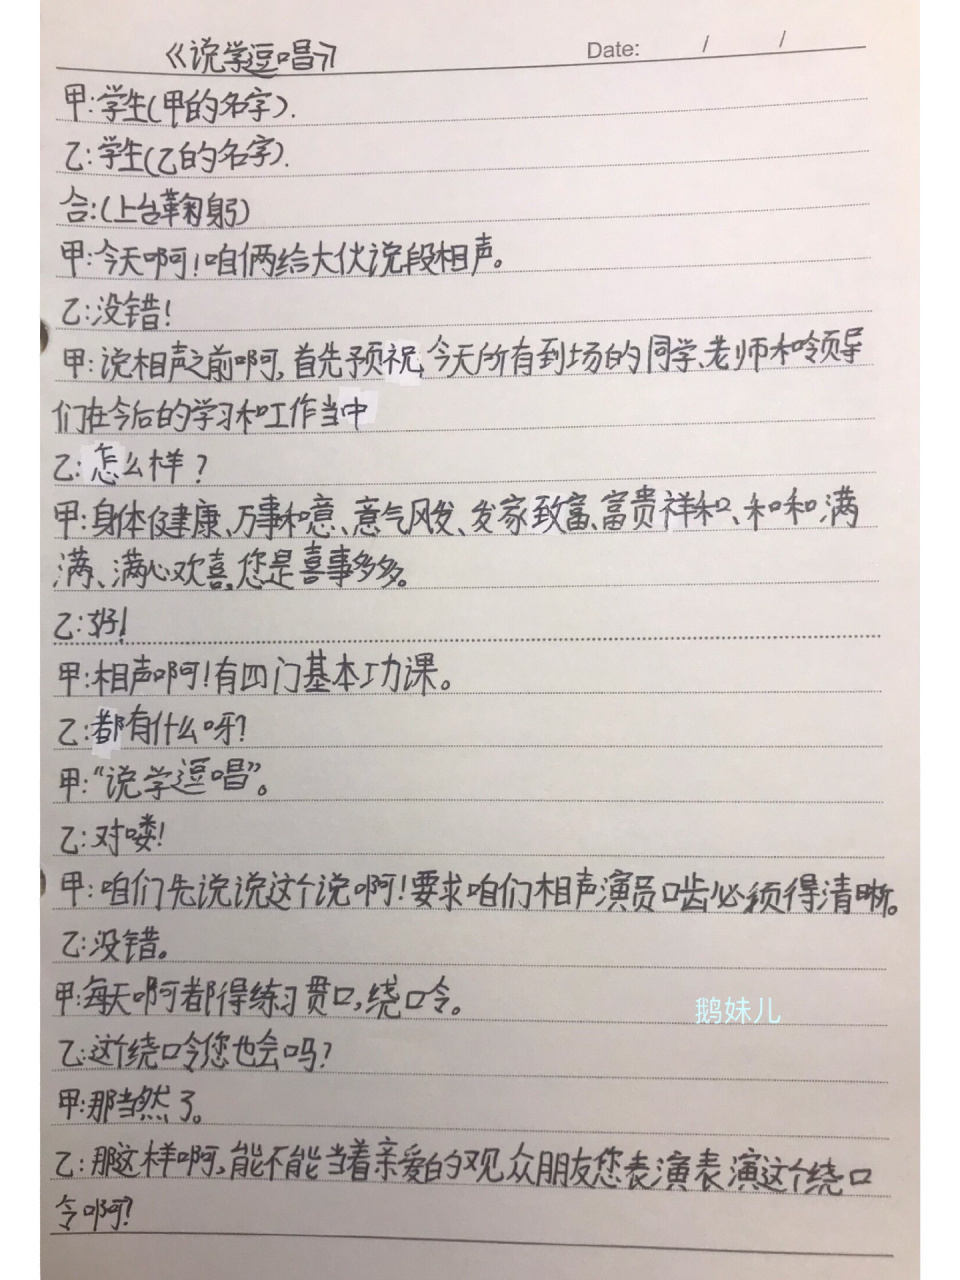 《说学逗唱》
Date: / /
甲:学生(甲的名字).
乙:学生(乙的名字).
合:(上台鞠躬)
甲:今天啊!咱俩给大伙说段相声。
乙:没错!
甲:说相声之前啊,首先预祝,今天所有到场的同学、老师和领导
们在今后的学习和工作当中
乙:怎么样?
甲:身体健康、万事和意、意气风发、发家致富、富贵祥和、和和满
满、满心欢喜,您是喜事多多。
乙:好!
甲:相声啊!有四门基本功课。
乙:都有什么呀?
甲:“说学逗唱”。
乙:对喽!
甲:咱们先说说这个说啊!要求咱们相声演员口齿必须得清晰。
乙:没错。
甲:每天啊都得练习贯口,绕口令。
鹅妹儿
乙:这个绕口令您也会吗?
甲:那当然了。
乙:那这样啊,能不能当着亲爱的观众朋友您表演表演这个绕口
令啊?